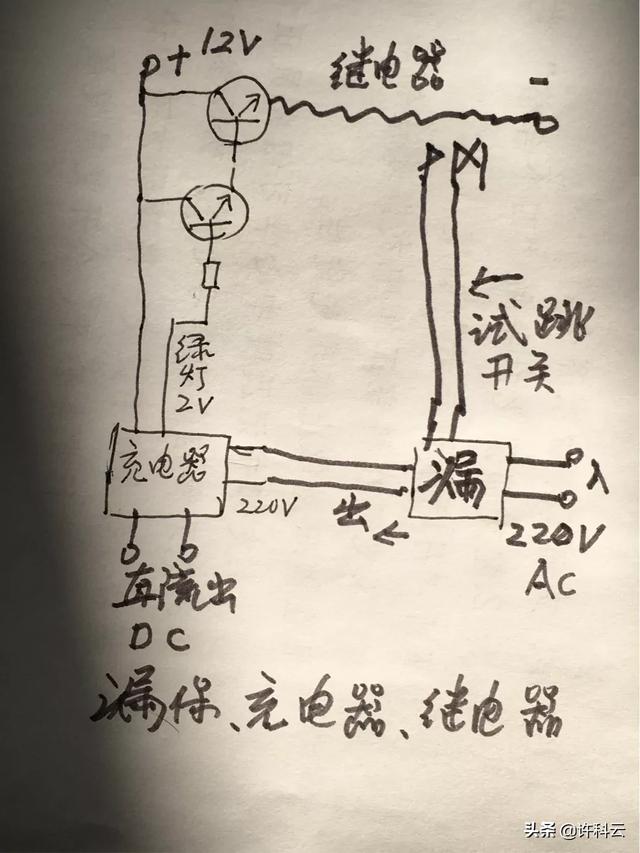 + 12V
继电器
-
试跳
开关
绿
灯
2V
充电器
220V
出
漏
入
220V
AC
直流出
DC
漏保、充电器、继电器
头条 @许科云